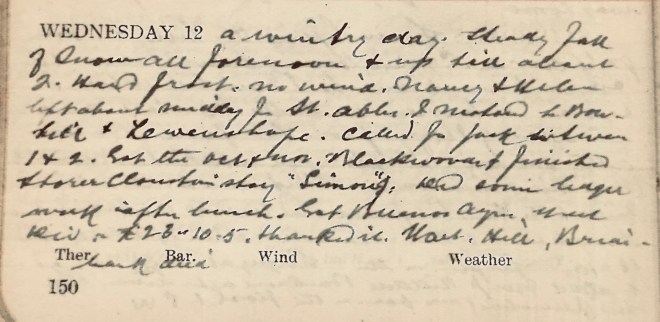 WEDNESDAY 12 a wintry day. Steady fall
of Snow all forenoon & up till about
2. Hard frost. no wind. Nancy & Helen
left about midday for St. abbs. I motored to Bow-
hill & Lewenshope. Called for Jack between
1 & 2. Got the Oct & Nov. Blackwoods & finished
Storer Cloustons story "Simon". Did some ledger
work after lunch. Got Buenos Ayres West
Div - £23-10-5. thanked it. Hill, Briar-
bank died
Ther. Bar. Wind Weather
150